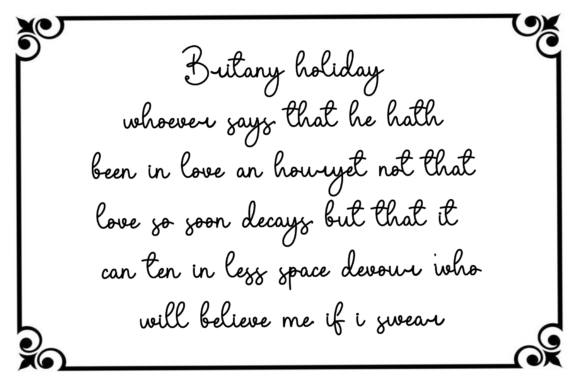 Britany holiday
whoever says that he hath
been in love an howryet not that
love so soon decays but that it
can ten in less space devour who
will believe me if i swear